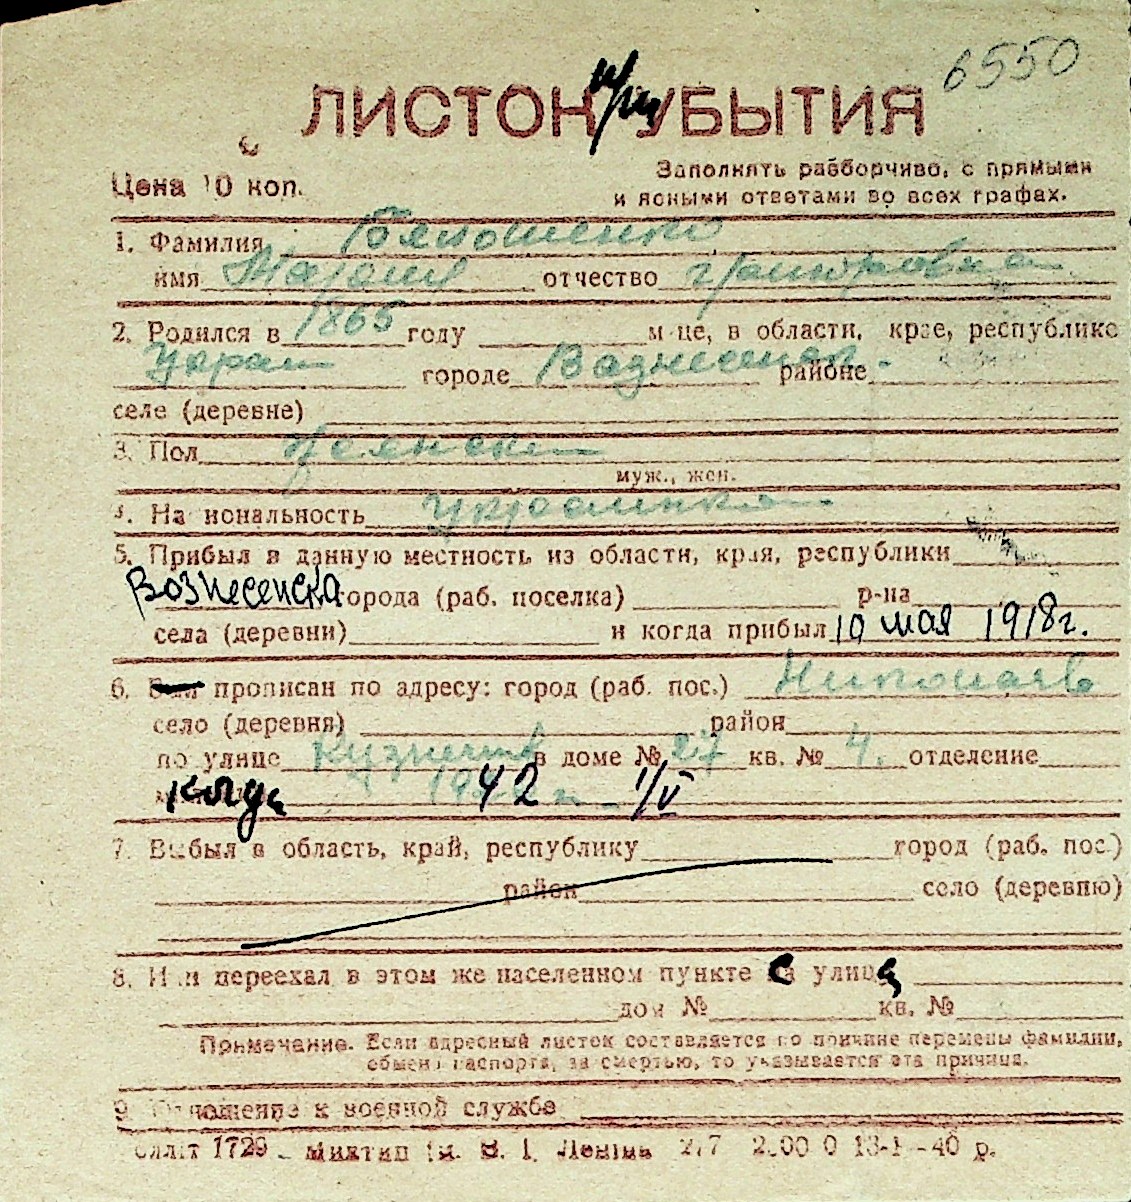 6550
ЛИСТОК УБЫТИЯ
Цена 10 коп.
Заполнять разборчиво, с прямыми
и ясными ответами во всех графах.
1. Фамилия
имя Мария отчество
2. Родился в 1865 году м-це, в области, крае, республике
Украин городе районе
селе (деревне)
3. Пол женск
муж., жен.
4. Национальность украинка
5. Прибыл в данную местность из области, края, республики
Вознесенска города (раб. поселка) р-на
села (деревни) и когда прибыл 10 мая 1918 г.
6. прописан по адресу: город (раб. пос.) Николаев
село (деревня) район
по улице в доме № кв. № 4. отделение
когда 1942 1/V
7. Выбыл в область, край, республику город (раб. пос.)
район село (деревню)
8. Или переехал в этом же населенном пункте с улиц
дом № кв. №
Примечание. Если адресный листок составляется по причине перемены фамилии,
обмена паспорта, за смертью, то указывается эта причина.
9. Отношение к военной службе
1729 Миктип ім. В. І. Леніна 40 р.